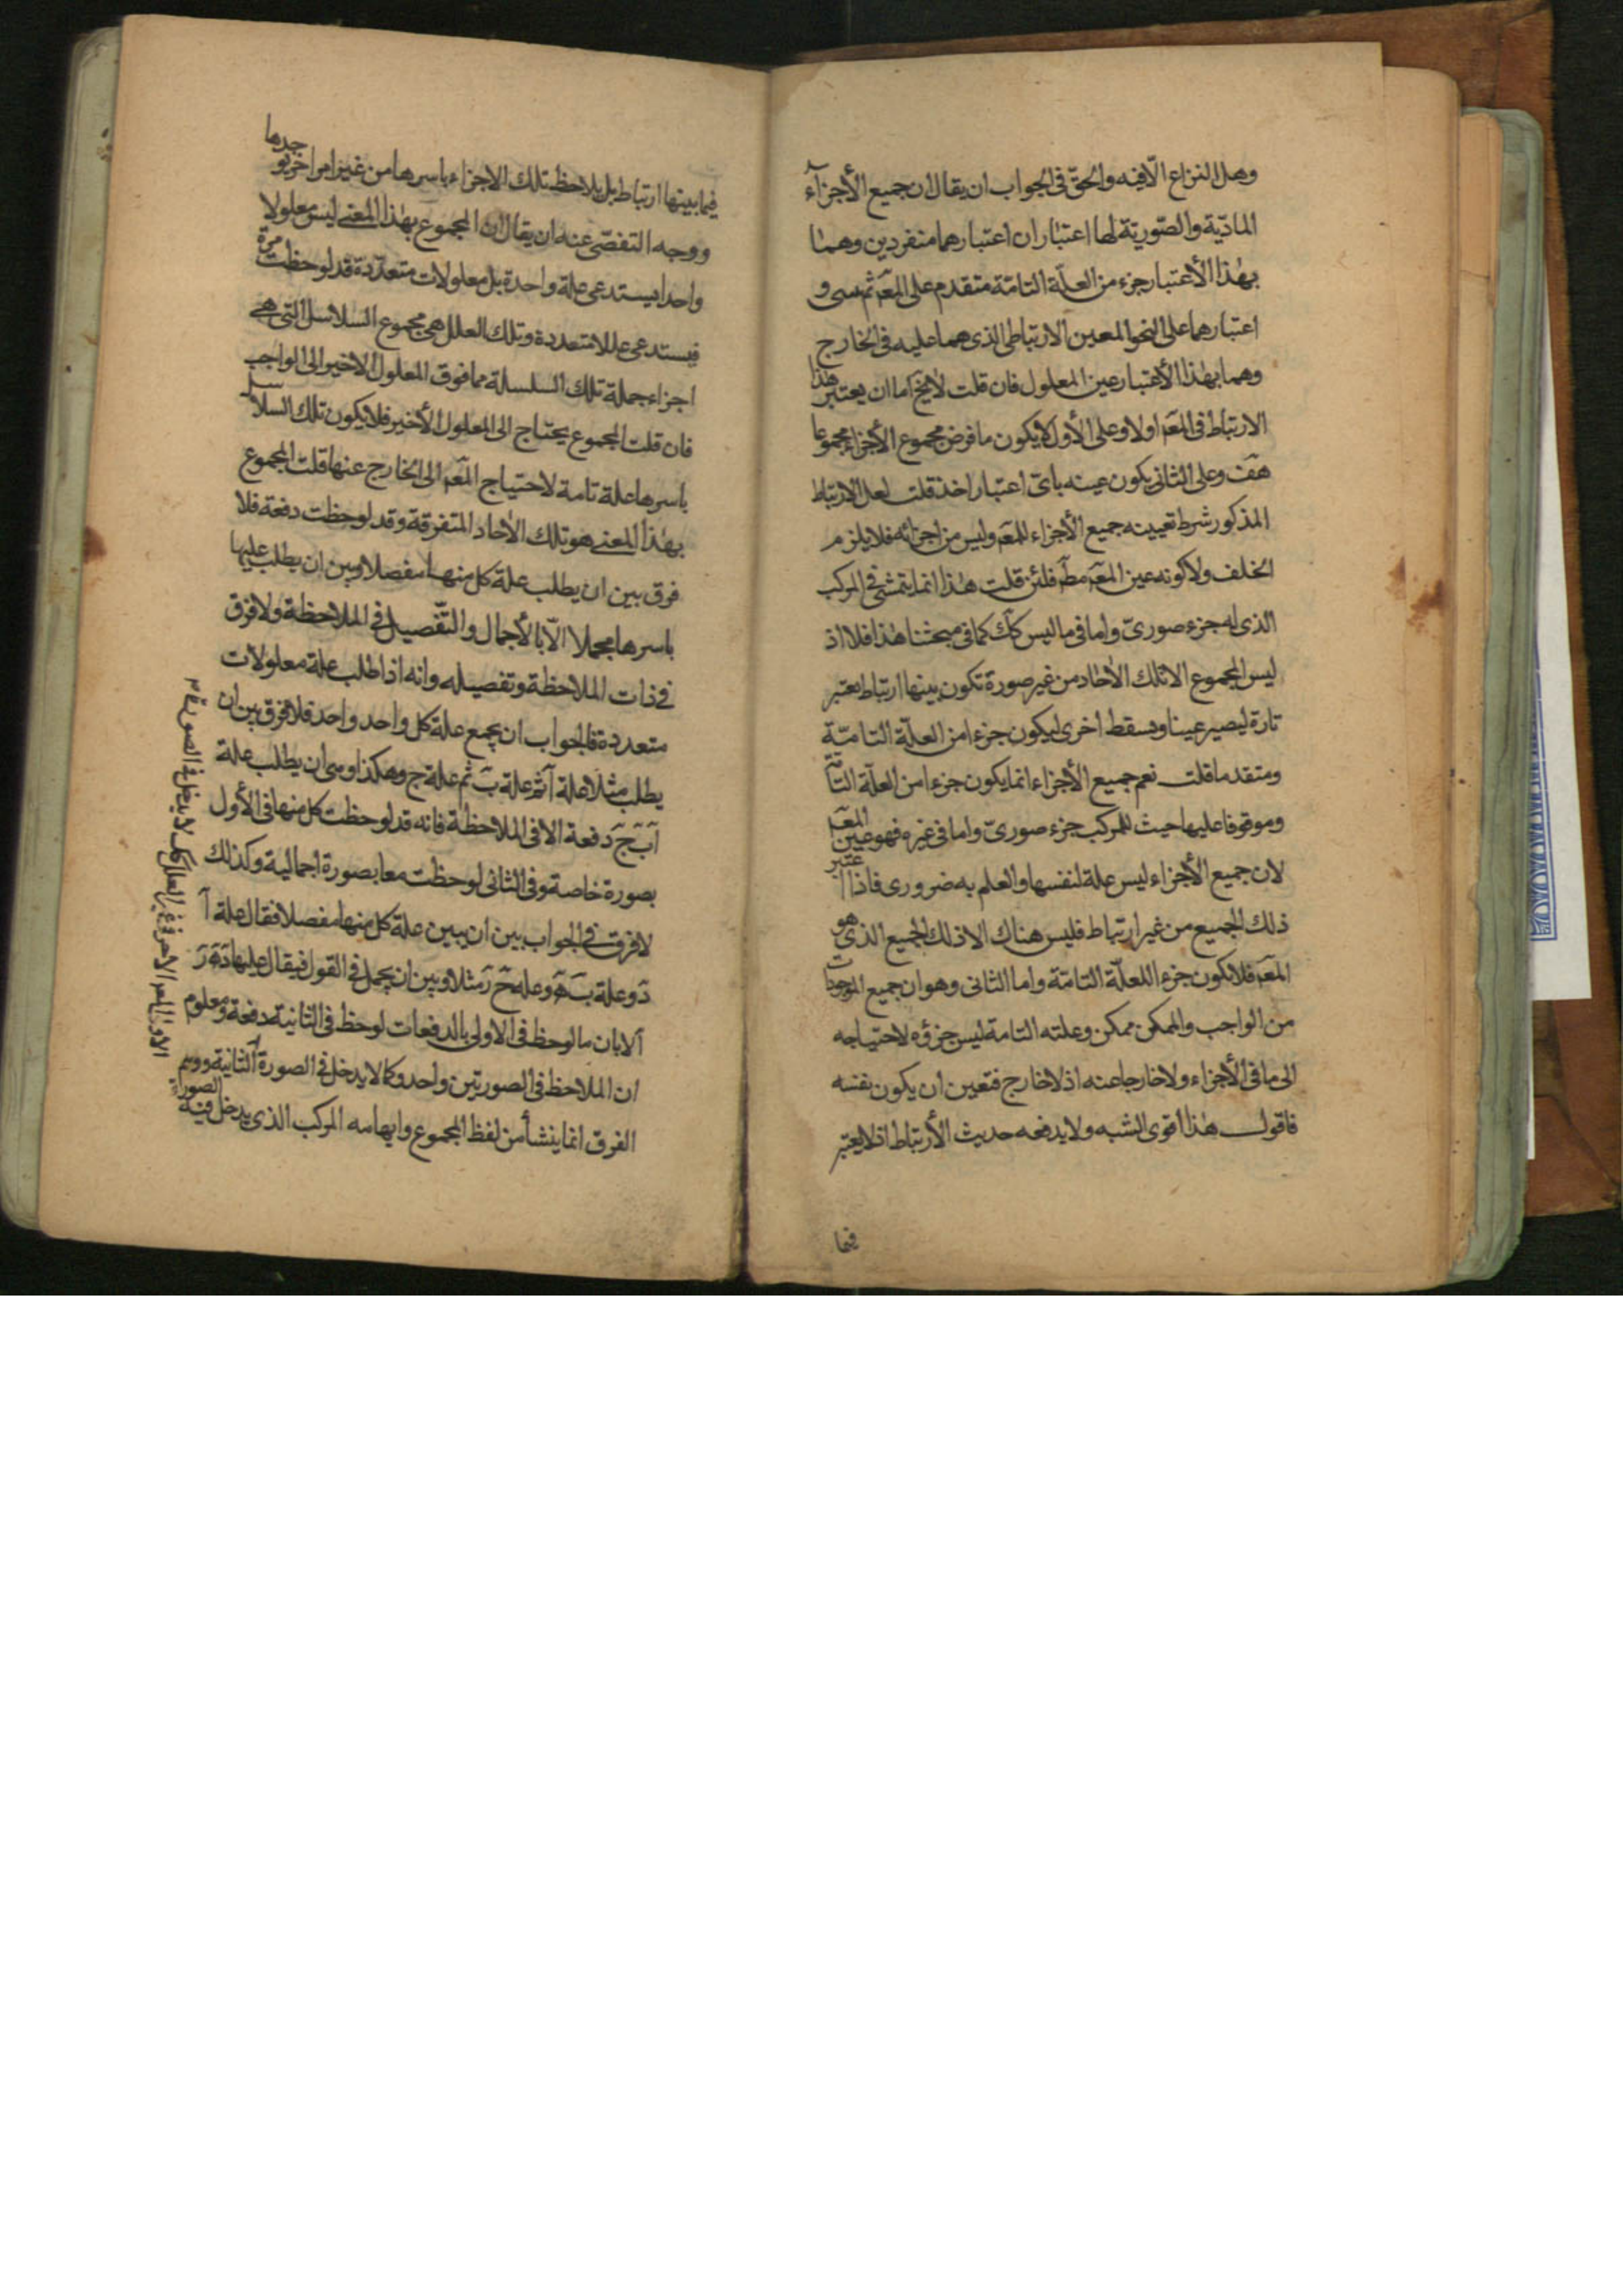 وهل النزاع الّا فيه والحقّ فى الجواب ان يقال ان جميع الأجزآء
المادّية والصّورية لها اعتباران اعتبارهما منفردين وهما
بهذا الأعتبار جزء من العلّة التامّة متقدم على المعَم ثم سى و
اعتبارهما على النحو المعين الارتباطى الذى هما عليه فى الخارج
وهما بهذا الأعتبار عين المعلول فان قلت لا يخَ اما ان يعتبر هذا
الارتباط فى المعَم اولا وعلى الأول لا يكون ما فرض مجموع الأجزاء مجموعا
هفَ وعلى الثانى يكون عينه باىّ اعتبار اخذ قلت لعل الارتباط
المذكور شرط تعيينه جميع الأجزاء للمعَم وليس من اجزائه فلا يلزم
الخلف ولا كونه عين المعَم مطَم فلئن قلت هذا انما يتمشى فى المركب
الذى له جزء صورىّ واما فى ما ليس كَك كما فى مبحثنا هذا فلا اذ
ليس المجموع الا تلك الأحاد من غير صورة تكون بينها ارتباط يعتبر
تارة ليصير عينا ويسقط اخرى ليكون جزءا من العلّة التامّة
ومتقدما قلت نعم جميع الأجزاء انما يكون جزءا من العلّة التآمّة
وموقوفا عليها حيث للمركب جزء صورىّ واما فى غيره فهو عين المعَم
لان جميع الأجزاء ليس علة لنفسها والعلم به ضرورى فاذا اعتبر
ذلك الجميع من غير ارتباط فليس هناك الا ذلك الجميع الذى هو
المعَم فلا يكون جزء اللعلّة التامّة واما الثانى وهو ان جميع الموجودات
من الواجب والممكن ممكن وعلته التامة ليس جزؤه لاحتياجه
الى ما فى الأجزاء ولا خارجا عنه اذ لا خارج فتعين ان يكون نفسه
فاقول هذا اقوى الشبه ولا يدفعه حديث الأرتباط اذ لا يعتبر
فيما
فيما بينها ارتباط بل يلاحظ تلك الاجزاء باسرها من غير امر اخر يوحدها
ووجه التفصّى عنه ان يقال ان المجموع بهذا المعنى ليس معلولا
واحدا يستدعى علة واحدة بل معلولات متعدّدة قد لوحظت مرة
فيستدعى عللا متعددة وتلك العلل هى مجموع السلاسل التى هى
اجزاء جملة تلك السلسلة مما فوق المعلول الاخير الى الواجب
فان قلت المجموع يحتاج الى المعلول الأخير فلا يكون تلك السلاسل
باسرها علة تامة لاحتياج المعَم الى الخارج عنها قلت المجموع
بهذا المعنى هو تلك الأحاد المتفرقة وقد لوحظت دفعة فلا
فرق بين ان يطلب علة كل منها مفصلا وبين ان يطلب عليها
باسرها مجملا الّا بالأجمال والتّفصيل فى الملاحظة ولا فرق
فى ذات الملاحظة وتفصيله وانه اذا طلب علة معلولات
متعددة فالجواب ان يجمع علة كل واحد واحد فلا فرق بين ان
يطلب مثلا علة آ ثم علة بَ ثم علة ج وهكذا وبين ان يطلب علة
آ بَ جَ دفعة الا فى الملاحظة فانه قد لوحظت كل منها فى الأول
بصورة خاصة وفى الثانى لوحظت معا بصورة اجمالية وكذلك
لا فرق فى الجواب بين ان يبين علة كل منها مفصلا فقال علة آ
دَ وعلة بَ هَ وعله جَ رَ مثلا وبين ان يجمل فى القول فيقال عليها دَ هَ رَ
الا بان ما لوحظ فى الاولى بالدفعات لوحظ فى الثانية دفعة ومعلوم
ان الملاحظ فى الصورتين واحد وكما لا يدخل فى الصورة الثانية ووهم
الفرق انما ينشأ من لفظ المجموع وايهامه المركب الذى يدخل فيه الصورة